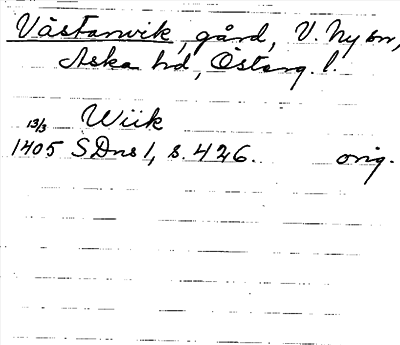 Västanvik, gård, V. Ny sn,
Aska hd, Österg. l.
Wiik
13/3
1405 SDns 1, s. 426. orig.